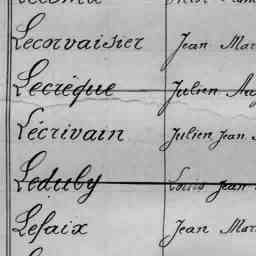 Lecorvaisier Jean Mar
Lecréque Julien Au
Lécrivain Julien Jean
Leduby Louis Jean
Lefaix Jean Mar